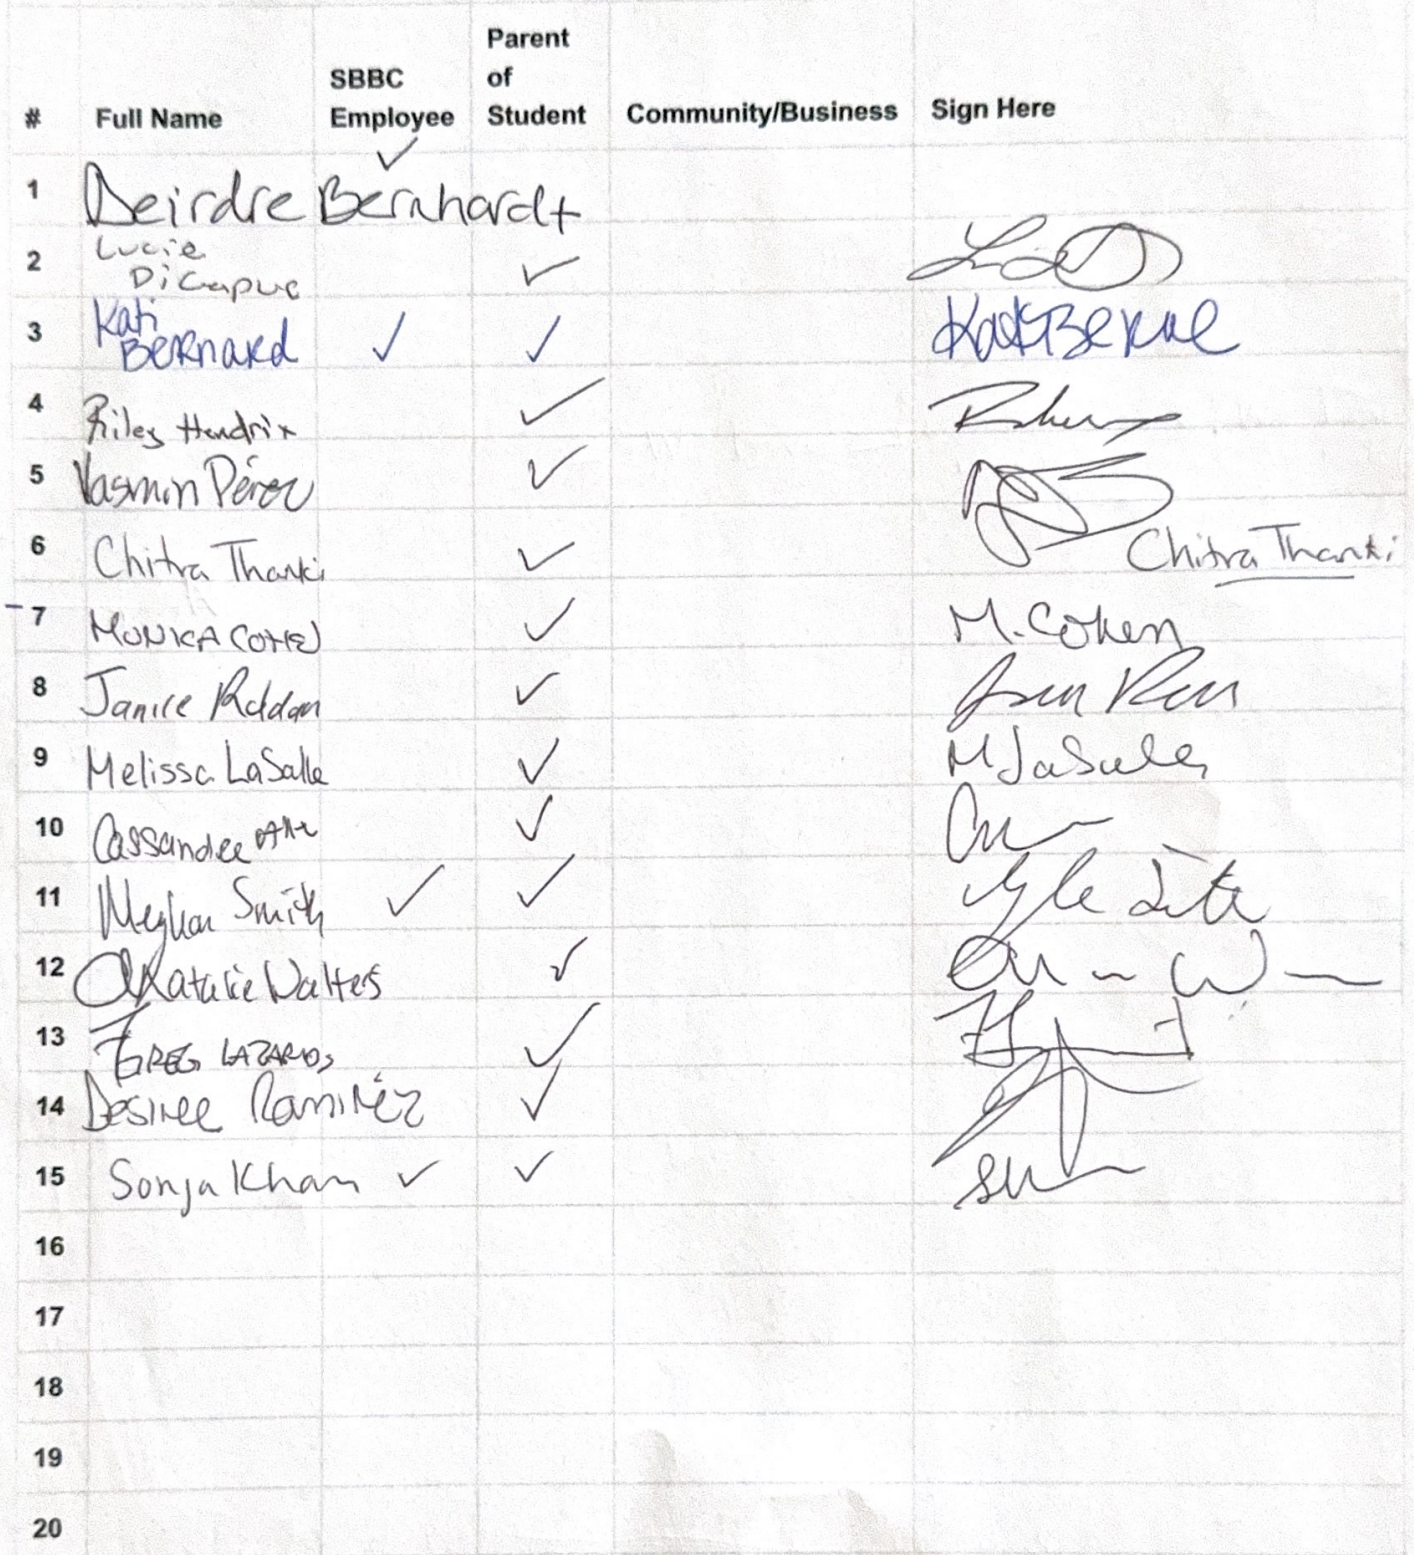 Parent
SBBC of
# Full Name Employee Student Community/Business Sign Here
✓
1 Deirdre Bernhardt
2 Lucie
DiCapua ✓
3 Kati
Bernard ✓ ✓
4 Riley Hendrix ✓
5 Yasmin Pérez ✓
6 Chitra Thanki ✓ Chitra Thanki
7 MONICA COHEN ✓ M. Cohen
8 Janice Roldan ✓
9 Melissa LaSalle ✓ M LaSalle
10 Cassandee ✓
11 Meghan Smith ✓ ✓
12 Natalie Walters ✓
13 GREG LAZAROS ✓
14 Desiree Ramírez ✓
15 Sonja Khan ✓ ✓
16
17
18
19
20